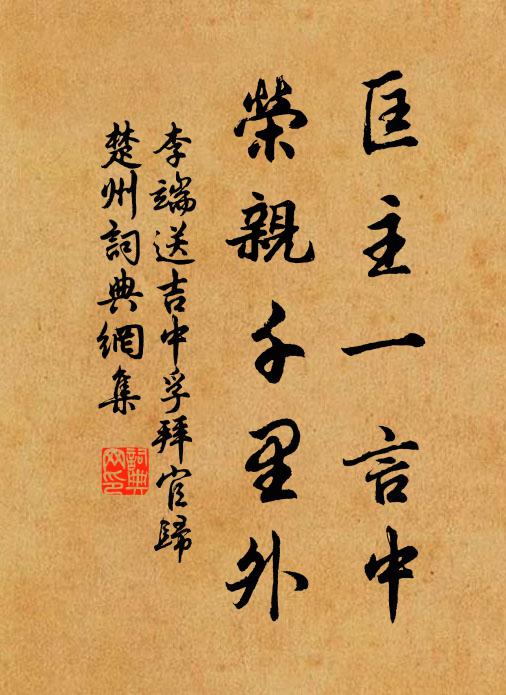 匡主一言中
榮親千里外
李端送吉中孚拜官歸
楚州詞典網集
詞典
网印